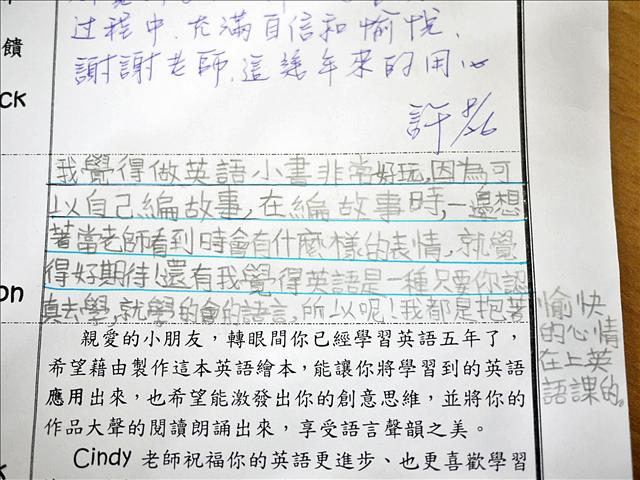 過程中,充滿自信和愉悅,
饋
謝謝老師,這幾年來的用心
ck
許 5/26
我覺得做英語小書非常好玩,因為可
以自己編故事,在編故事時,一邊想
著當老師看到時會有什麼樣的表情,就覺
得好期待!還有我覺得英語是一種只要你認
on
真去學,就學的會的語言,所以呢!我都是抱著
愉快
的心情
在上英
語課的。
親愛的小朋友,轉眼間你已經學習英語五年了,
希望藉由製作這本英語繪本,能讓你將學習到的英語
應用出來,也希望能激發出你的創意思維,並將你的
作品大聲的閱讀朗誦出來,享受語言聲韻之美。
Cindy 老師祝福你的英語更進步、也更喜歡學習